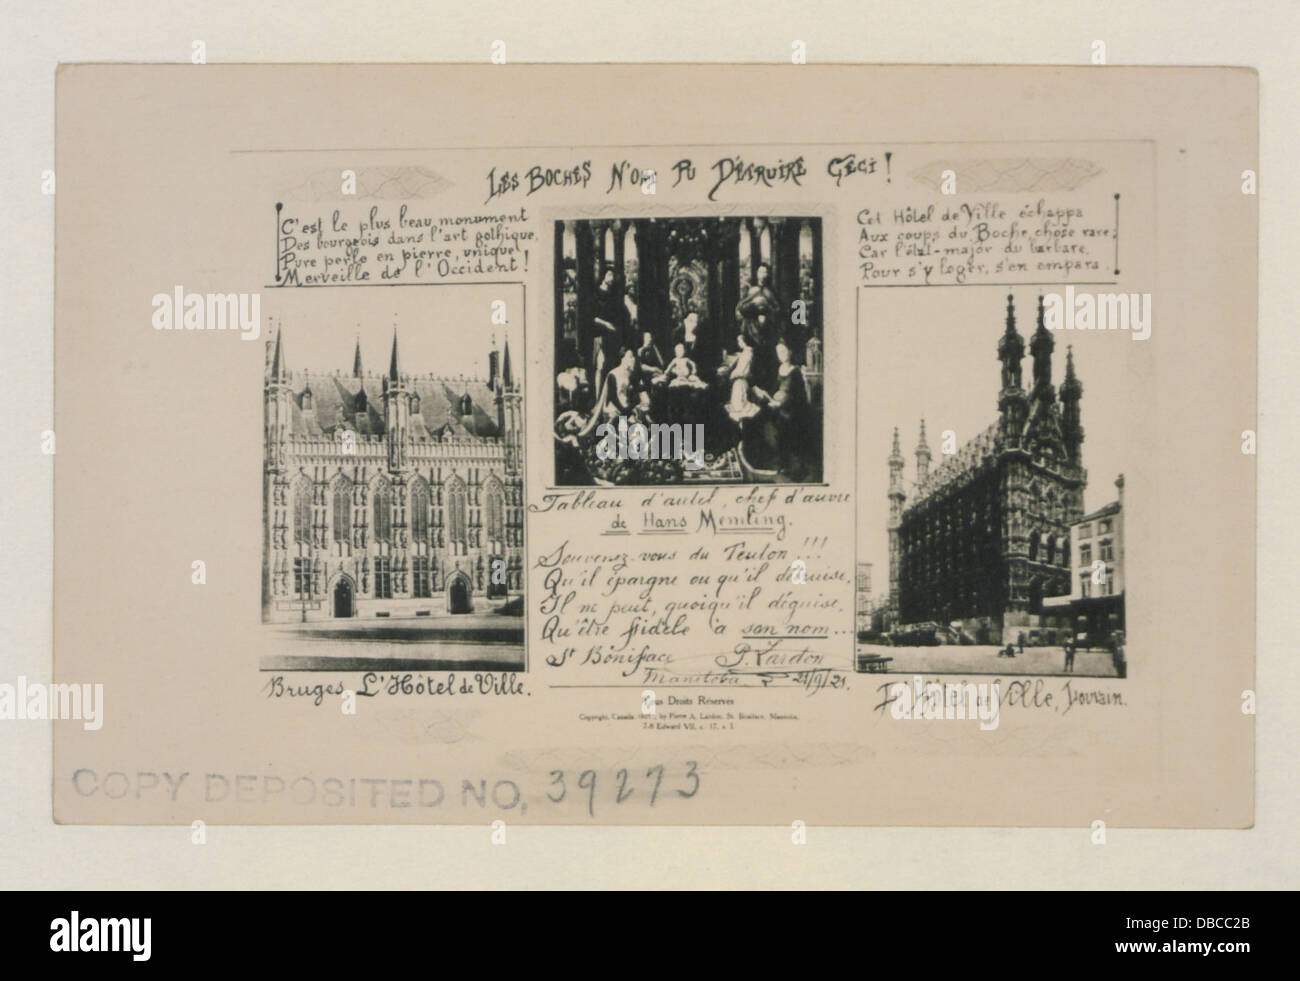 LES BOCHES N'ONT PU DÉTRUIRE CECI!
C'est le plus beau monument
Des bourgeois dans l'art gothique,
Pure perle en pierre, unique
Merveille de l'Occident!
Cet Hôtel de Ville échappa
Aux coups du Boche, chose rare;
Car l'état-major du barbare,
Pour s'y loger, s'en empara.
Tableau d'autel, chef d'œuvre
de Hans Memling.
Souvenez-vous du Teuton!!!
Qu'il épargne ou qu'il détruise,
Il ne peut, quoiqu'il déguise,
Qu'être fidèle à son nom...
St Boniface P. Lardon
Manitoba 21/9/21.
Bruges L'Hôtel de Ville.
L'Hôtel de Ville, Louvain.
Tous Droits Réservés
Copyright, Canada by Pierre A. Lardon, St. Boniface, Manitoba,
7-8 Edward VII, c. 17, s 3.
COPY DEPOSITED NO. 39273
alamy
alamy
Image ID: DBCC2B
www.alamy.com